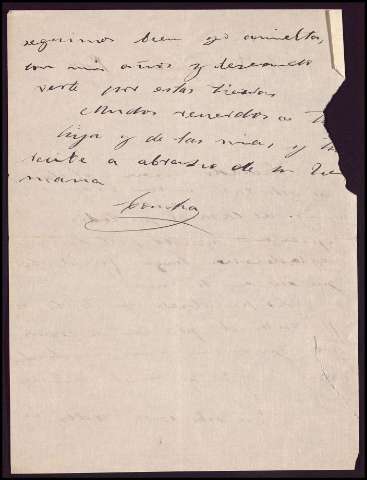 seguimos bien yo
con mis años y deseando
verte por estas tierras
Muchos recuerdos a
hija y de las mias, y
un abrazo de tu
mana
Concha